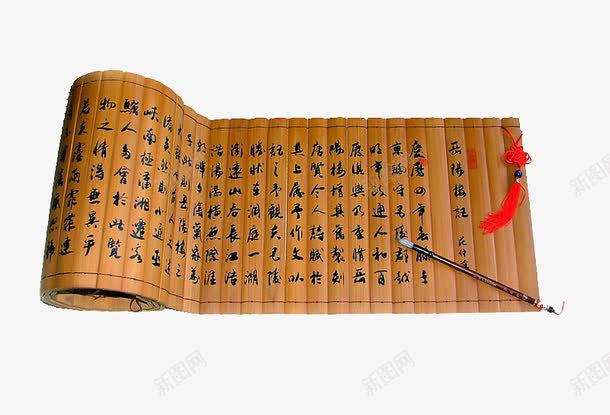 岳陽樓記
范仲淹
慶曆四年春滕子
京謫守巴陵郡越
明年政通人和百
廢具興乃重修岳
陽樓增其舊制刻
唐賢今人詩賦於
其上屬予作文以
記之予觀夫巴陵
勝狀在洞庭一湖
銜遠山吞長江浩
浩湯湯橫無際涯
朝暉夕陰氣象萬
千此則岳陽樓之
大觀也前人之述
備矣然則北通巫
峽南極瀟湘遷客
騷人多會於此覽
物之情得無異乎
若夫霪雨霏霏連
新图网
新图网
新图网
新图网